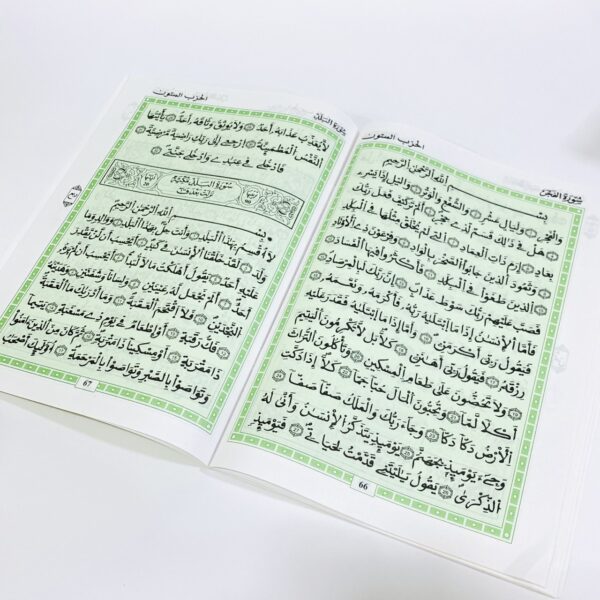 سورة الفجر
الحزب الستون
بسم الله الرحمن الرحيم
والفجر وليال عشر والشفع والوتر واليل إذا يسر
هل في ذلك قسم لذي حجر ألم تر كيف فعل ربك
بعاد إرم ذات العماد التي لم يخلق مثلها في البلد
وثمود الذين جابوا الصخر بالواد وفرعون ذي الأوتاد
الذين طغوا في البلد فأكثروا فيها الفساد
فصب عليهم ربك سوط عذاب إن ربك لبالمرصاد
فأما الإنسن إذا ما ابتليه ربه فأكرمه ونعمه
فيقول ربي أكرمن وأما إذا ما ابتليه فقدر عليه
رزقه فيقول ربي أهنن كلا بل لا تكرمون اليتيم
ولا تحضون على طعام المسكين وتأكلون التراث
أكلا لما وتحبون المال حبا جما كلا إذا دكت
الأرض دكا دكا وجاء ربك والملك صفا صفا
وجيء يومئذ بجهنم يومئذ يتذكر الإنسن وأنى له
الذكرى يقول يليتني قدمت لحياتي فيومئذ
66
سورة البلد
الحزب الستون
لا يعذب عذابه أحد ولا يوثق وثاقه أحد يأيتها
النفس المطمئنة ارجعي إلى ربك راضية مرضية
فادخلي في عبدي وادخلي جنتي
سورة البلد مكية
بسم الله الرحمن الرحيم
لا أقسم بهذا البلد وأنت حل بهذا البلد ووالد وما
ولد لقد خلقنا الإنسن في كبد أيحسب أن لن يقدر
عليه أحد يقول أهلكت مالا لبدا أيحسب أن لم يره
أحد ألم نجعل له عينين ولسانا وشفتين وهدينه
النجدين فلا اقتحم العقبة وما أدريك ما العقبة
فك رقبة أو إطعام في يوم ذي مسغبة يتيما
ذا مقربة أو مسكينا ذا متربة ثم كان من الذين ءامنوا
وتواصوا بالصبر وتواصوا بالمرحمة أولئك أصحب
67